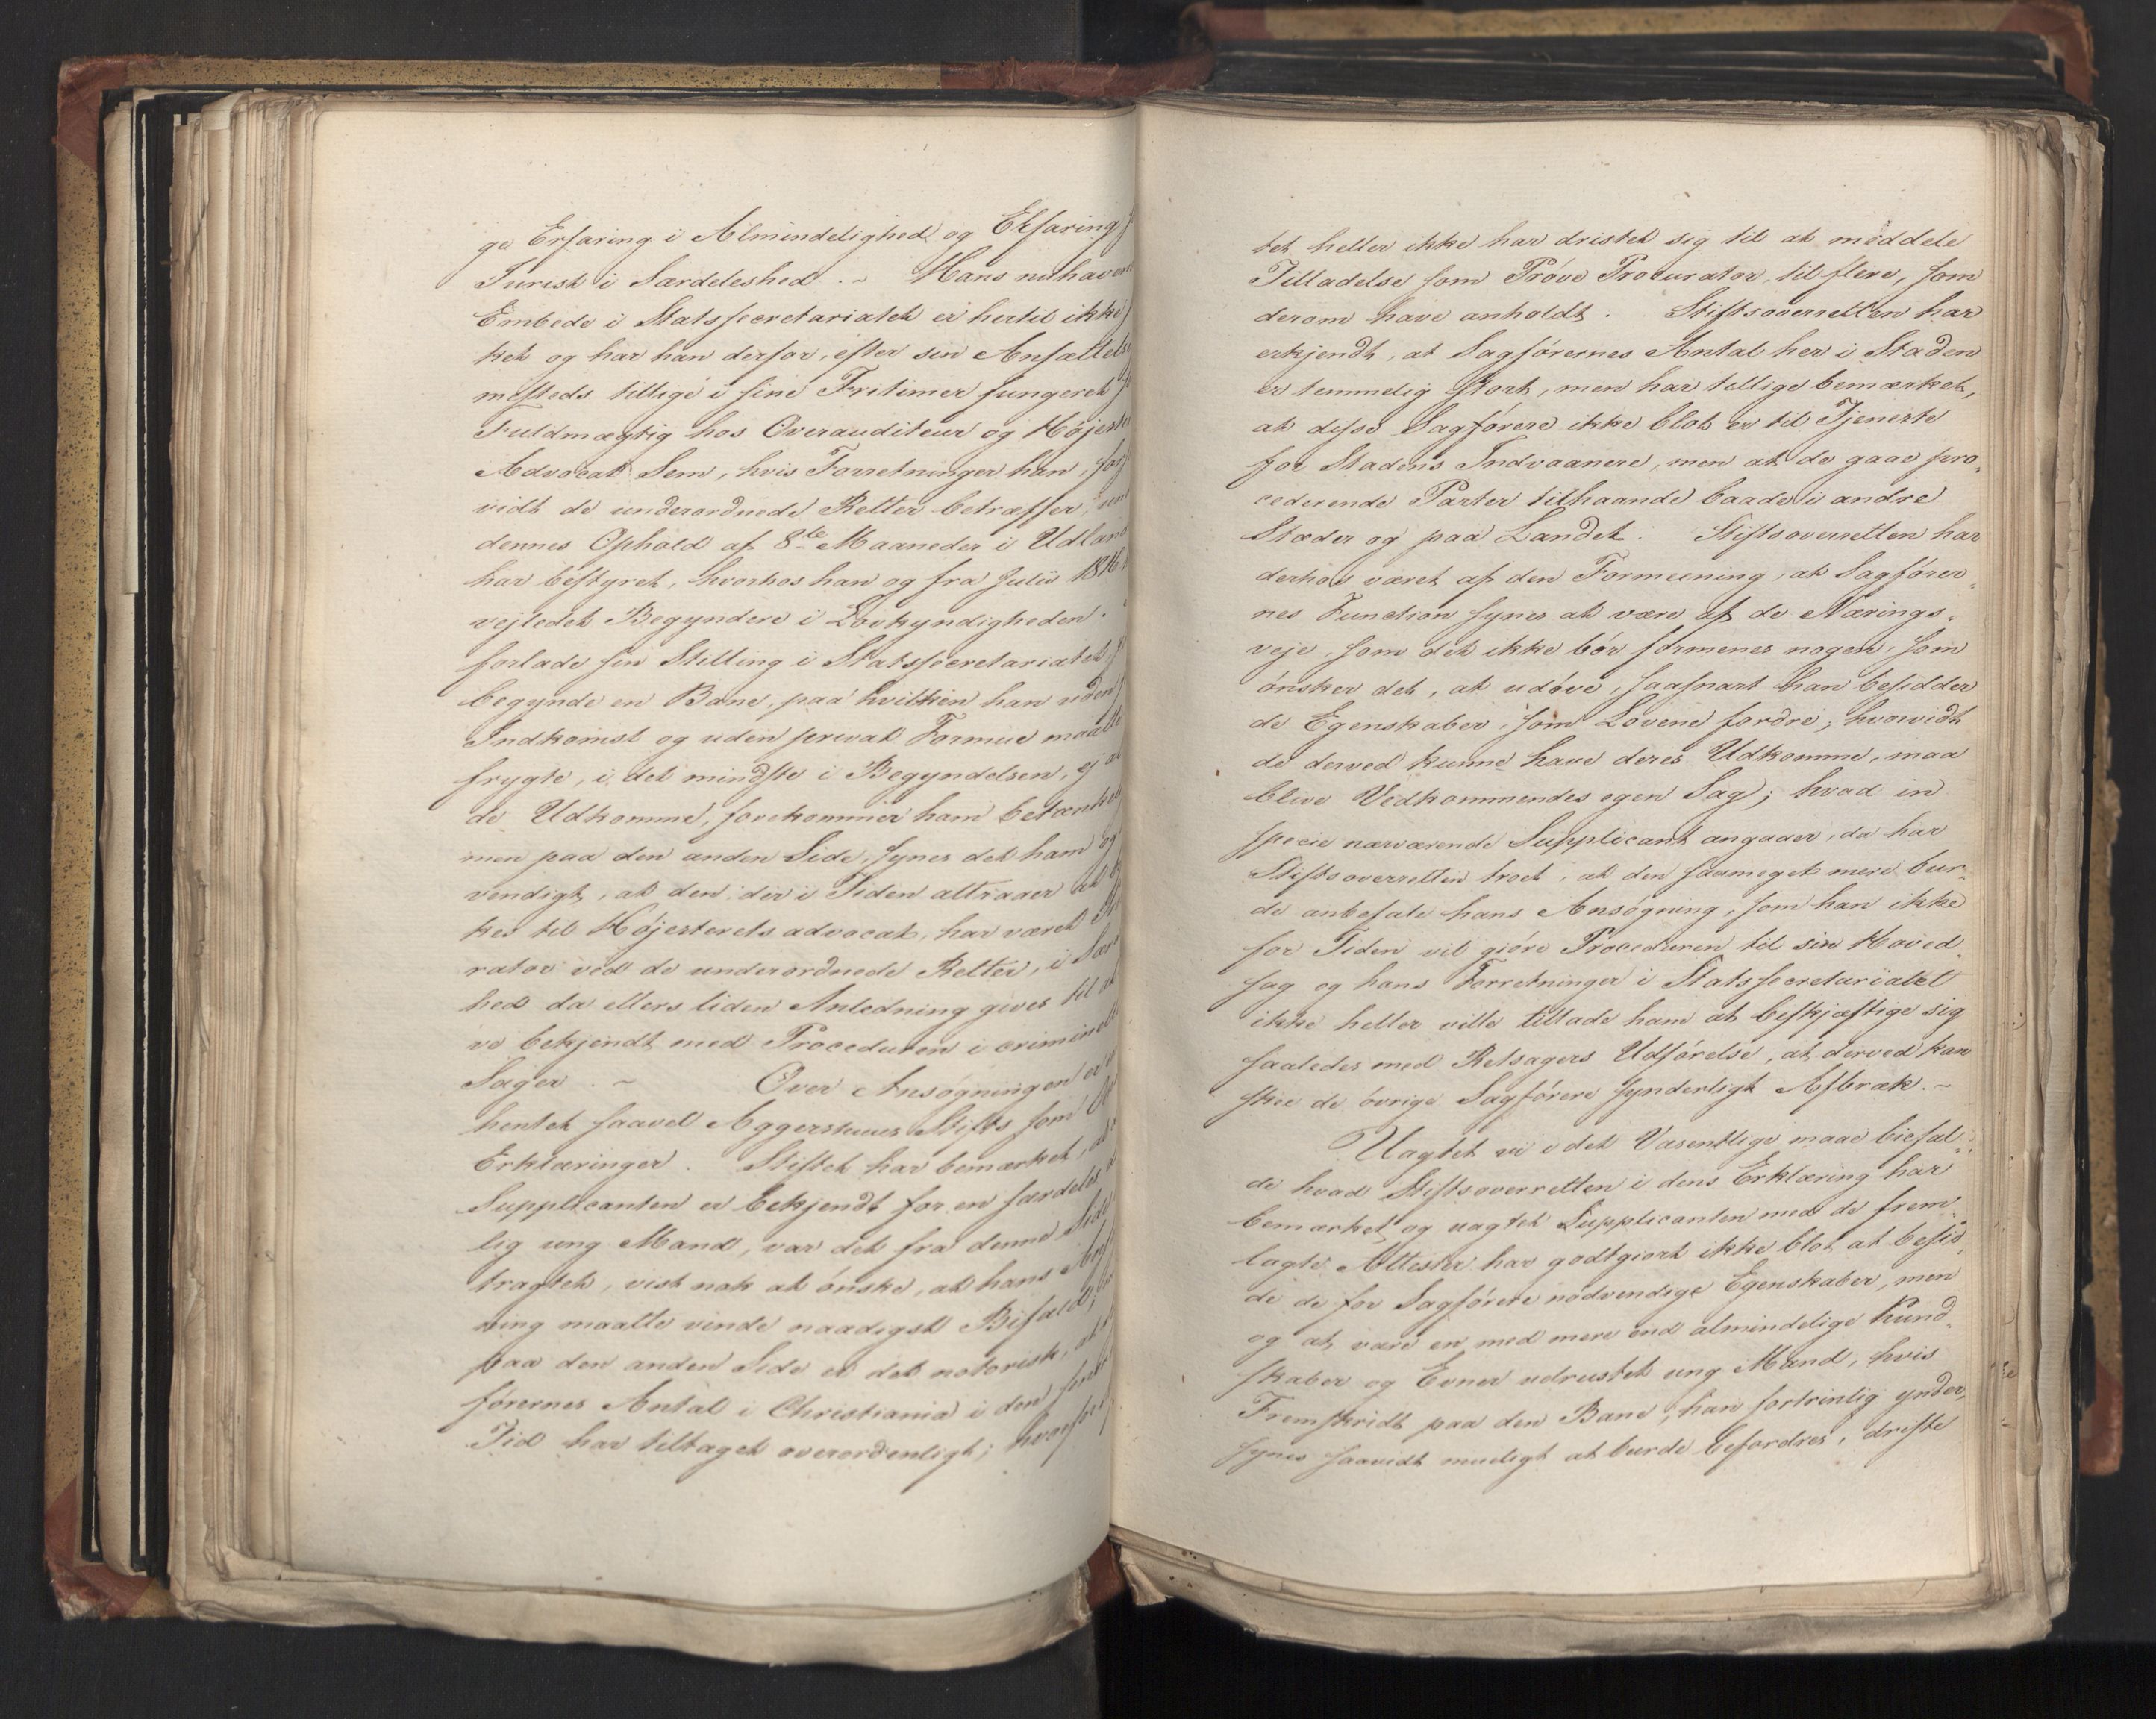 ge Erfaring i Almindelighed og Erfaring
Jurist i Særdeleshed. - Hans nuhaven
Embede i Statssecretariatet er hertil ikke
ket og har han derfor, efter sin Ansættelse
msteds tillige i sine Fritimer fungeret
Fuldmægtig hos Overauditeur og Højeste
Advocat Sem, hvis Forretninger han, for
vidt de underordnede Retter betræffer, un
dennes Ophold af 8te Maaneder i Udland
har bestyret, hvorhos han og fra Julii 1816
vejledet Begyndere i Lovkyndigheden.
forlade sin Stilling i Statssecretariatet
begynde en Bane, paa hvilken han uden
Indkomst og uden privat Formue maatte
frygte, i det mindste i Begyndelsen, ej at
de Udkomme, forekommer ham betænkel
men paa den anden Side, synes det ham og
vendigt, at den der i Tiden attraaer at b
kes til Højesterets advocat, har været
rator ved de underordnede Retter, i Sær
hed da ellers liden Anledning gives til at
ve bekjendt med Proceduren i criminelle
Sager. - Over Ansøgningen er
hentet saavel Aggershuus Stifts som
Erklæringer. Stiftet har bemærket, at
Supplicanten er bekjendt for en særdeles
lig ung Mand, var det fra denne Side
tragtet, vist nok at ønske, at hans
ning maatte vinde naadigst Bifald;
paa den anden Side er det notorisk, at
førernes Antal i Christiania i den
Tid har tiltaget overordenligt; hvorfor
tet heller ikke har dristet sig til at meddele
Tilladelse som Prøve Procurator, til flere, som
derom have anholdt. Stiftsoverretten har
erkjendt, at Sagførernes Antal her i Staden
er temmelig stort, men har tillige bemærket,
at disse Sagførere ikke blot er til Tjeneste
for Stadens Indvaanere, men at de gaae pro-
cederende Parter tilhaande baade i andre
Stæder og paa Landet. Stiftsoverretten har
derhos været af den Formeening, at Sagfører-
nes Function synes at være af de Nærings-
veje, som det ikke bør formenes nogen, som
ønsker det, at udøve, saasnart han besidder
de Egenskaber, som Lovene fordre; hvorvidt
de derved kunne have deres Udkomme, maa
blive Vedkommendes egen Sag; hvad in
specie nærværende Supplicant angaaer, da har
Stiftsoverretten troet, at den saameget mere bur-
de anbefale hans Ansøgning, som han ikke
for Tiden vil giøre Proceduren til sin Hoved
sag og hans Forretninger i Statssecretariatet
ikke heller ville tillade ham at beskjæftige sig
saaledes med Retsagers Udførelse, at derved kan
skee de øvrige Sagførere synderligt Afbræk. -
Uagtet vi i det Væsentlige maae biefal-
de hvad Stiftsoverretten i dens Erklæring har
bemærket og uagtet Supplicanten med de frem-
lagte Attester har godtgiort ikke blot at besid-
de de for Sagførere nødvendige Egenskaber, men
og at være en med mere end almindelige Kund-
skaber og Evner udrustet ung Mand, hvis
Fremskridt paa den Bane, han fortrinlig ynder,
synes saavidt mueligt at burde befordres, driste